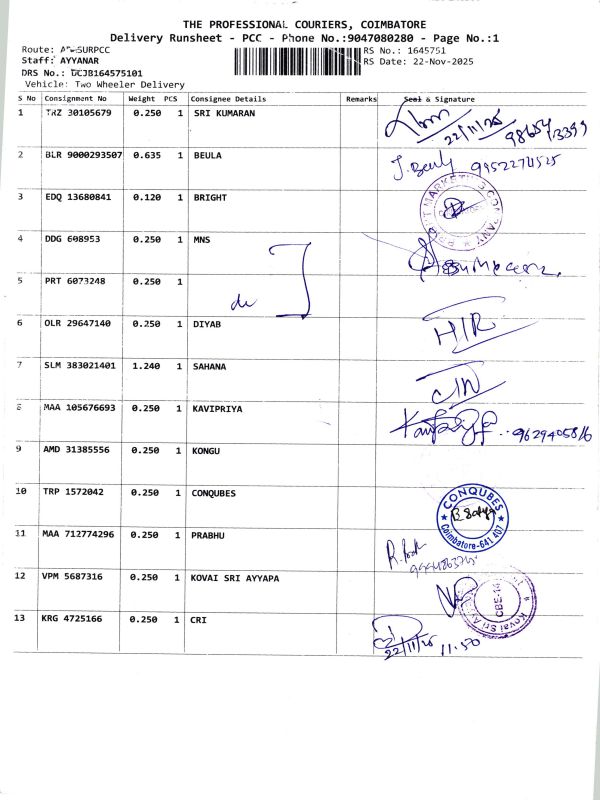 THE PROFESSIONAL COURIERS, COIMBATORE
Delivery Runsheet - PCC - Phone No.:9047080280 - Page No.:1
Route: RS No.: 1645751
Staff: AYYANAR RS Date: 22-Nov-2025
DRS No.: DCJB164575101
Vehicle: Two Wheeler Delivery
S No Consignment No Weight PCS Consignee Details Remarks Seal & Signature
1 TRZ 30105679 0.250 1 SRI KUMARAN
22/11/25
2 BLR 9000293507 0.635 1 BEULA J. Beuly
3 EDQ 13680841 0.120 1 BRIGHT
4 DDG 608953 0.250 1 MNS
5 PRT 6073248 0.250 1
6 OLR 29647140 0.250 1 DIYAB H/R
7 SLM 383021401 1.240 1 SAHANA
8 MAA 105676693 0.250 1 KAVIPRIYA 9629405816
9 AMD 31385556 0.250 1 KONGU
10 TRP 1572042 0.250 1 CONQUBES CONQUBES
Coimbatore-641 407
11 MAA 712774296 0.250 1 PRABHU
12 VPM 5687316 0.250 1 KOVAI SRI AYYAPA
13 KRG 4725166 0.250 1 CRI
22/11/25 11.50